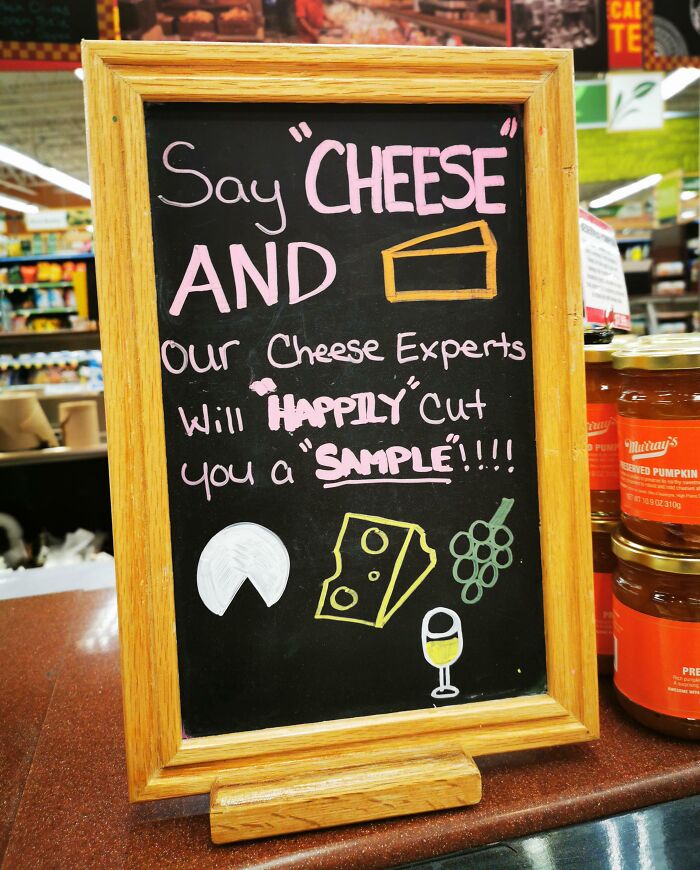 Say "CHEESE"
AND
our Cheese Experts
Will "HAPPILY" Cut
you a "SAMPLE"!!!!
CAL
TE
Murray's
RESERVED PUMPKIN
NET WT 10.9 OZ 310g
PRE